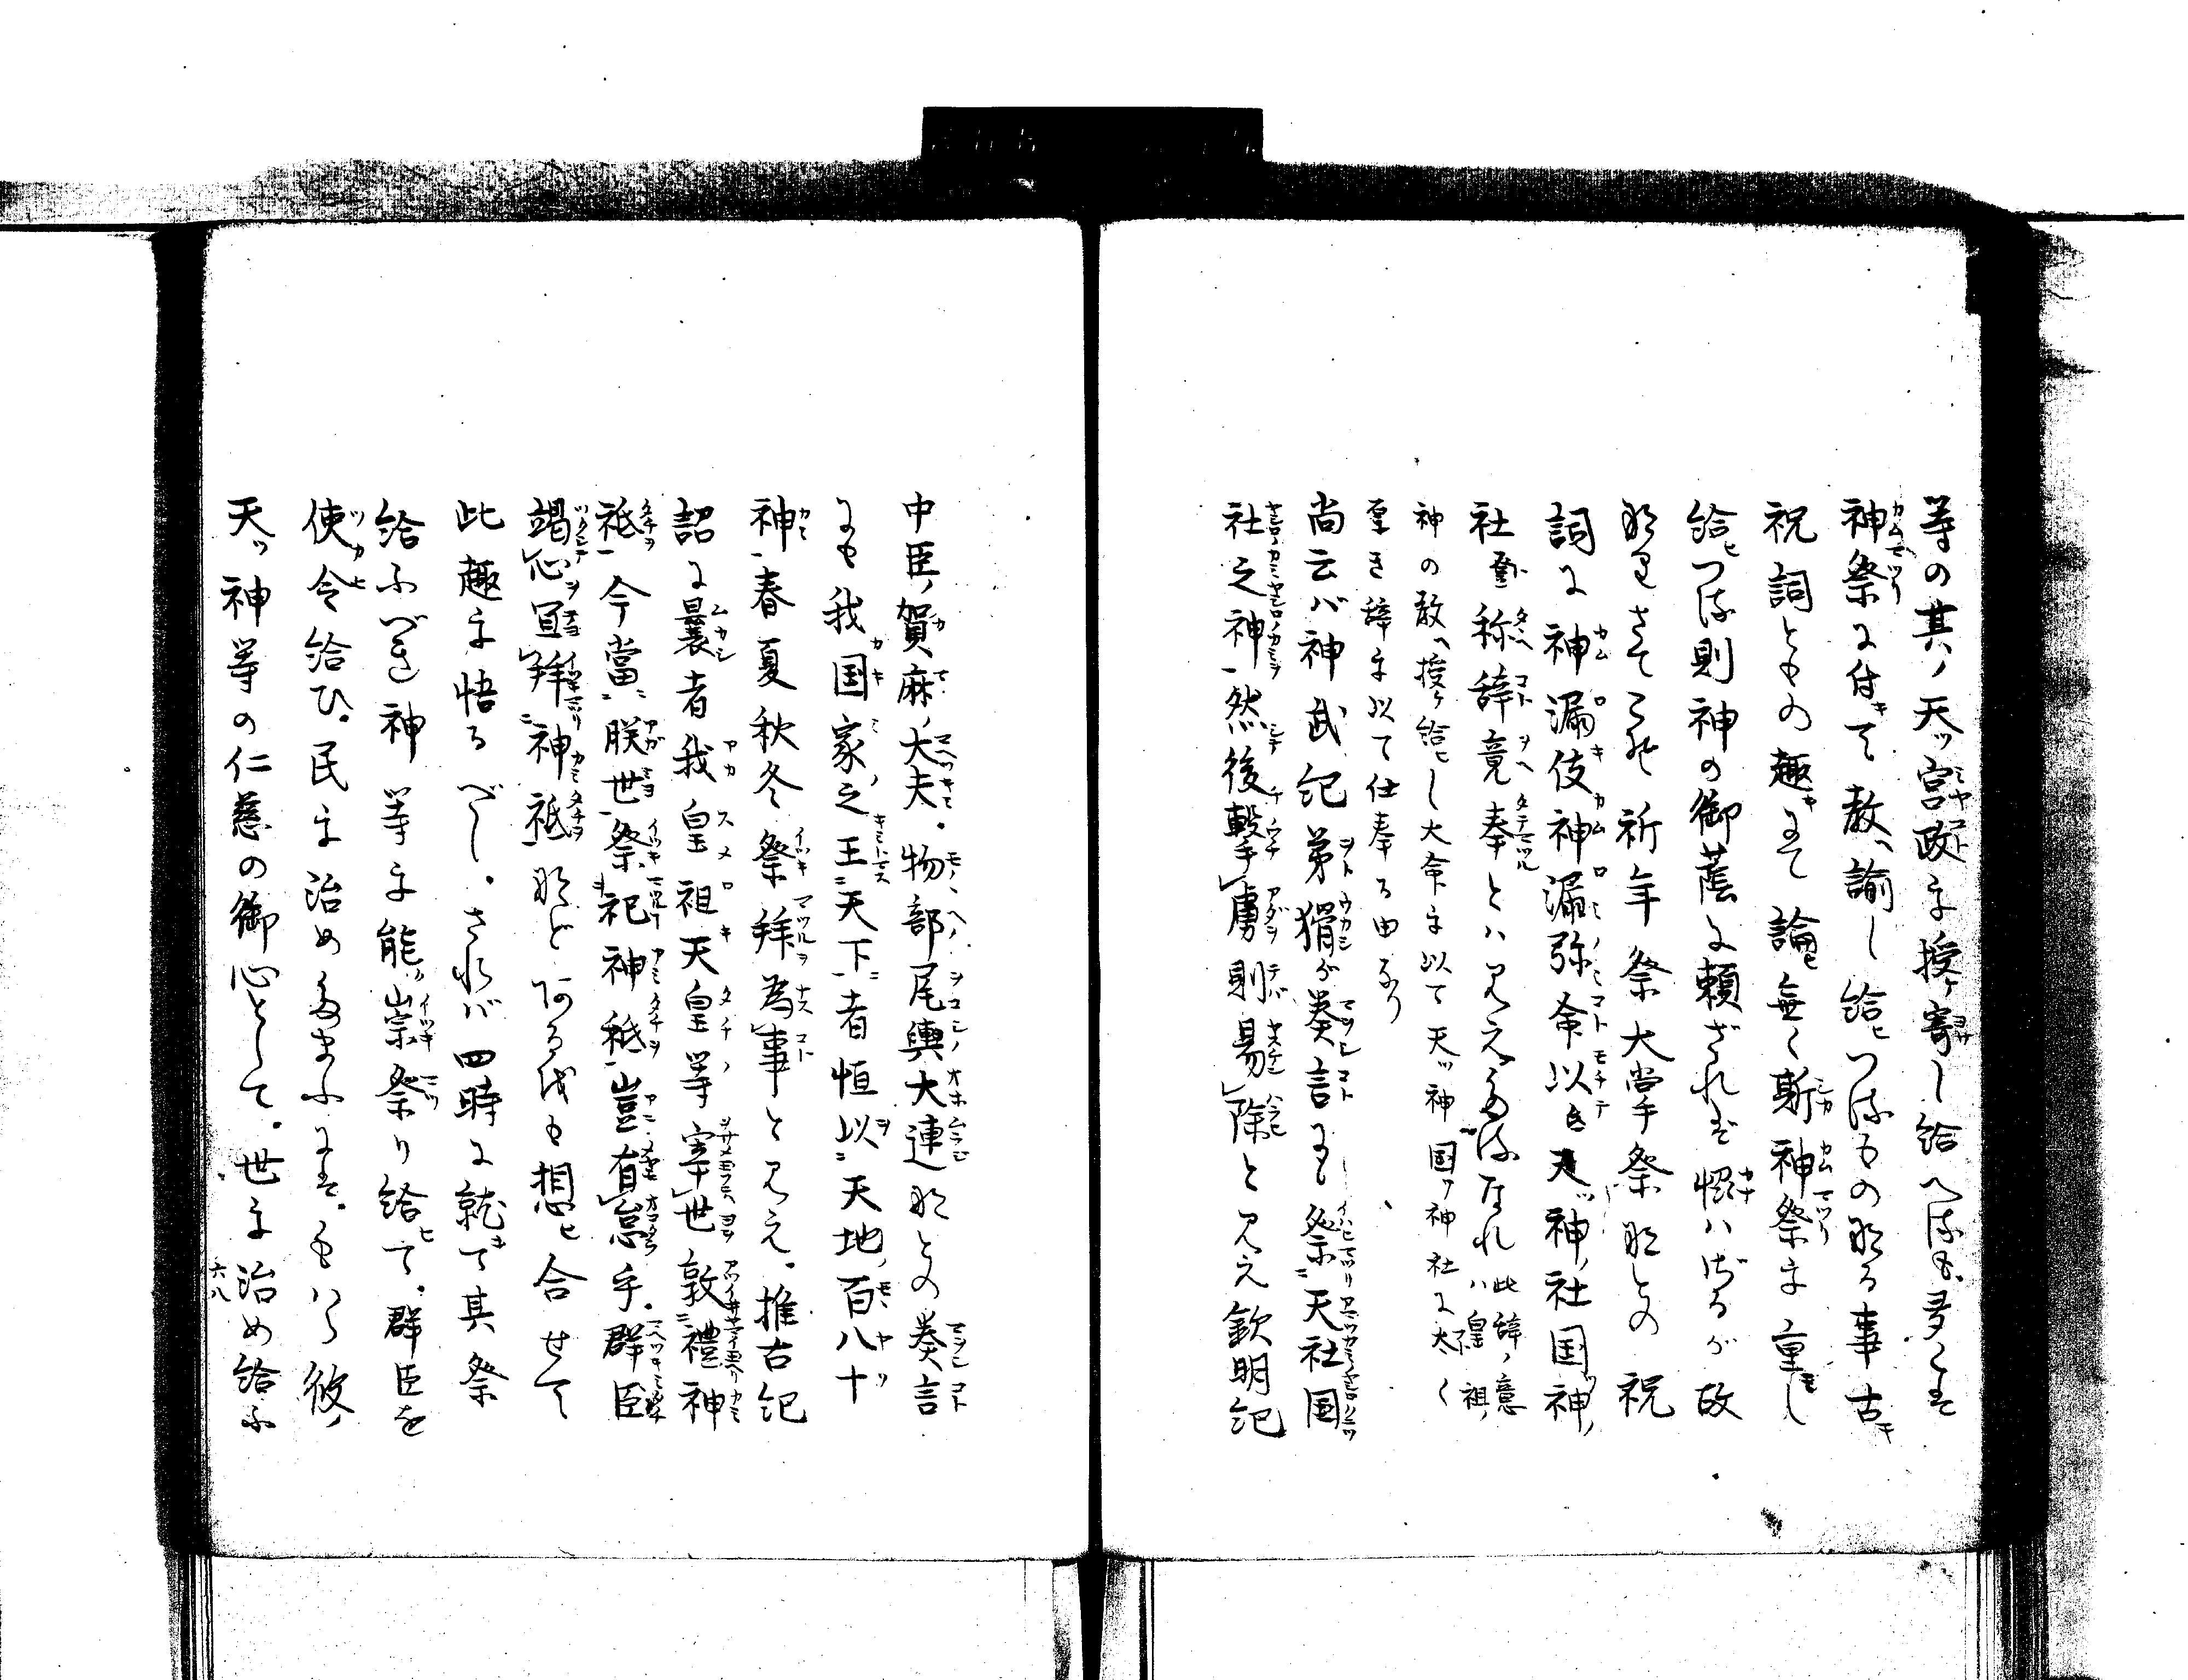 等の其ノ天ッ宮政を授ヶ寄し給へるも多くは
神祭に付キて教ヘ諭し給ヒつるもの那る事古キ
祝詞ともの趣キにて論ヒ無く斯神祭を重し
給ヒつる則神の御蔭に頼ざれば惺ハざるが故
那りさてこそ祈年祭大嘗祭那との祝
詞に神漏伎神漏弥命以天ッ神ノ社国ッ神ノ
社称辞竟奉とハ見えたるなれ此辞ノ意ハ皇祖ノ
神の教ヘ授ヶ給ヒし大命を以て天ッ神国ッ神社に太く
重き辞を以て仕奉る由なり
尚云バ神武紀弟猾が奏言にも祭ニ天社国
社之神一然後撃レ虜則易レ除と見え欽明紀
中臣ノ賀麻ノ大夫。物部尾輿大連那との奏言
にも我国家之王ニ天下一者恒以ニ天地ノ百八十
神一春夏秋冬祭拜為レ事と見え。推古紀
詔に曩者我皇祖天皇等宰レ世敦ニ禮神
祗一今當ニ朕世一祭ニ祀神祗一豈有レ怠乎。群臣
竭レ心宜レ拜ニ神祗一那と阿るをも想ヒ合せて
此趣を悟るべし。されバ四時に就キて其祭
給ふべき神等を能ク崇祭り給ヒて。群臣を
使令給ひ。民を治めたまふには。
天ッ神等の仁慈の御心として。世を治め給ふ
六八